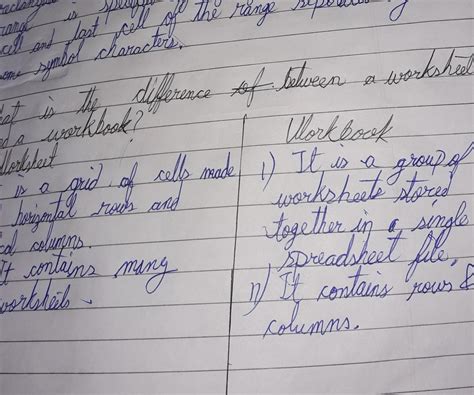 cell and last cell of the range
some symbol characters.
is the difference of between a worksheet
a workbook?
Worksheet
is a grid of cells made
horizontal rows and
columns.
It contains many
worksheets.
Workbook
i) It is a group of
worksheets stored
together in a single
spreadsheet file.
ii) It contains rows &
columns.